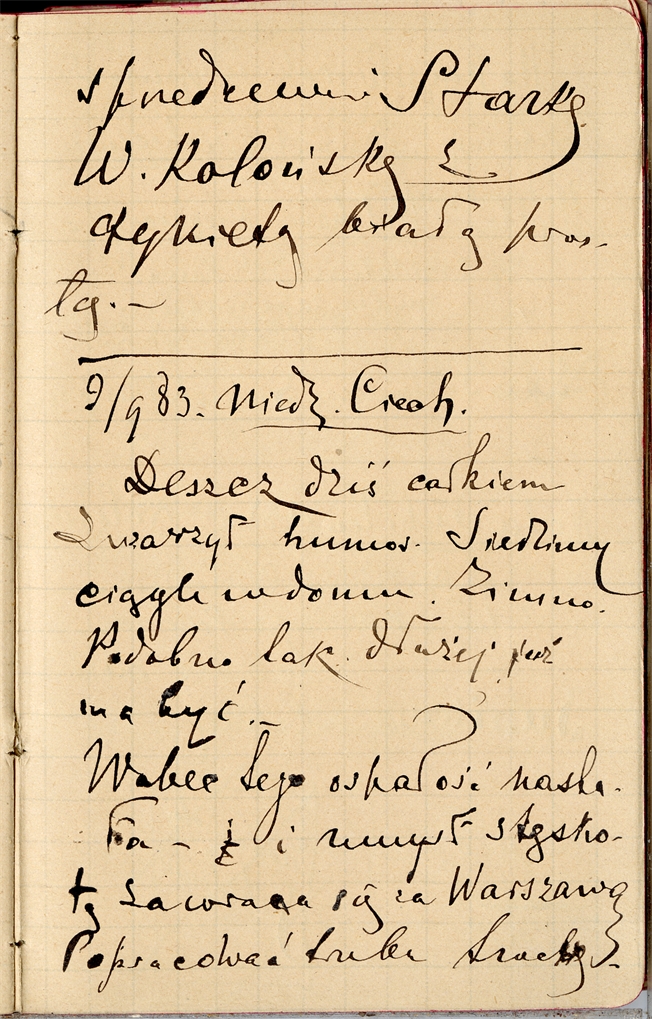 sprzedzeniu Starkę
W. Kolońską z
etykietą białą pros-
tą. —
9/9 83. Niedz. Ciech.
Deszcz dziś całkiem
zwarzył humor. Siedzimy
ciągle w domu. Zimno.
Podobno tak dłużej już
ma być. —
Wobec tego ospałość nasta-
ła – i umysł z tęskno-
tą zawraca się za Warszawą
Popracować trzeba trochę.